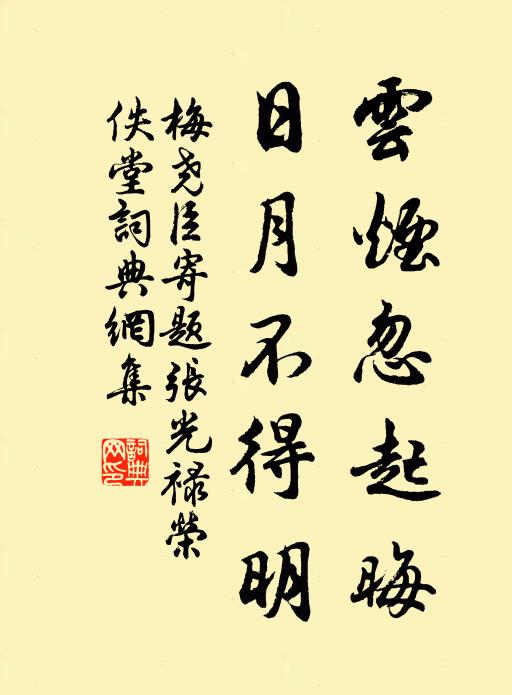 雲煙忽起晦
日月不得明
梅尧臣寄题張光禄榮
佚堂詞典網集
詞典网印